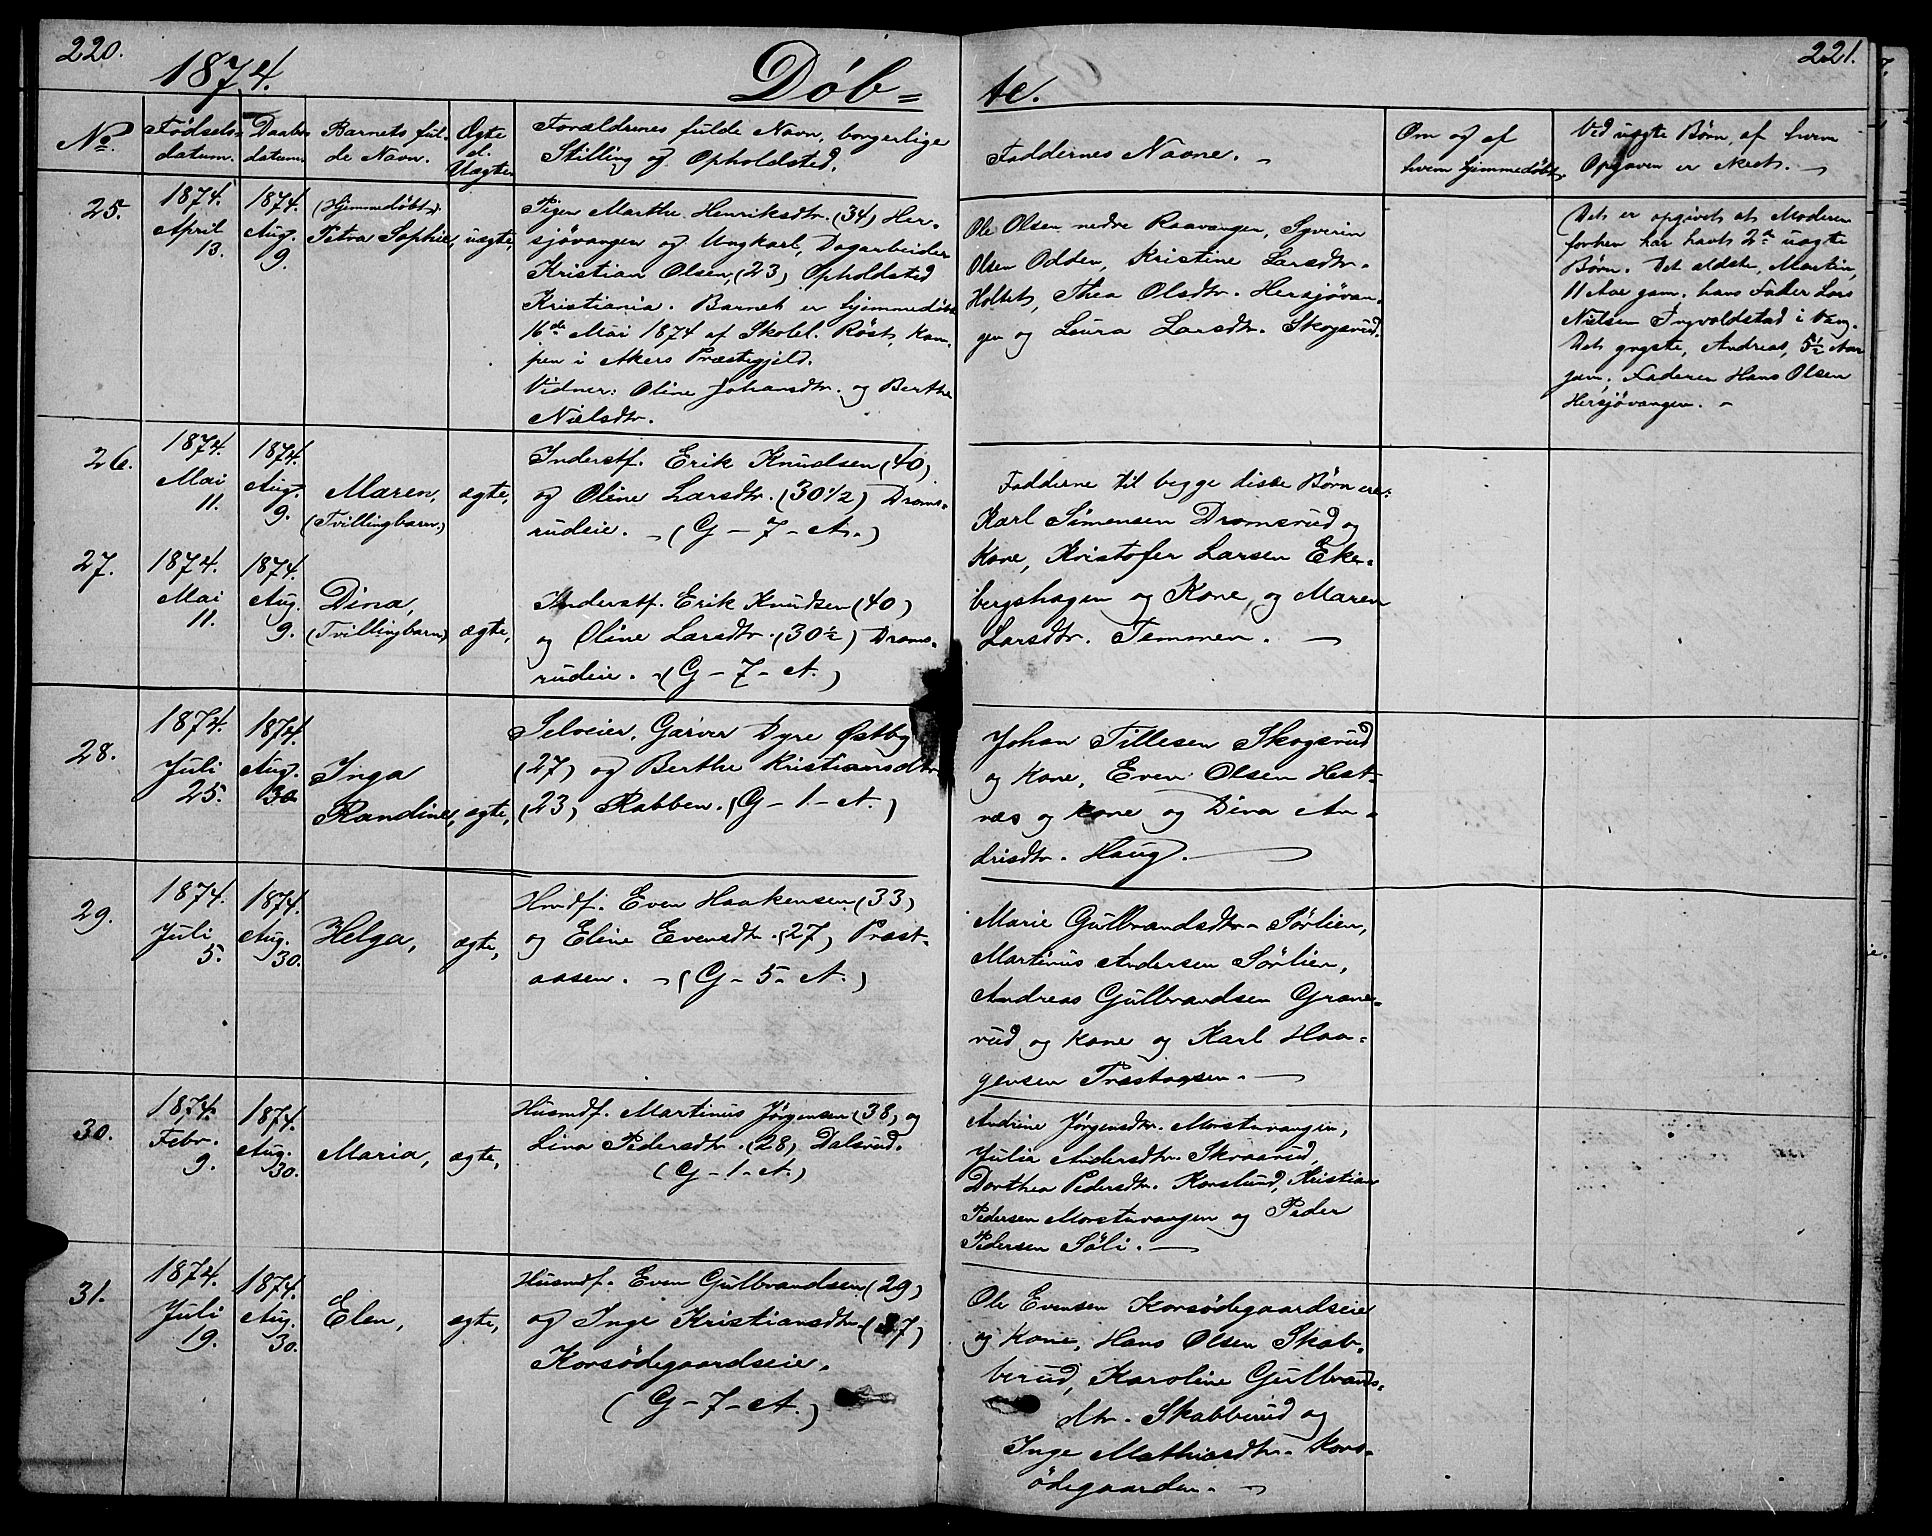 220.
1874.
Döb=
te.
221.
No.
Fødsels-
datum.
Daabs-
datum.
Barnets ful-
de Navn.
Ægte
el.
Uægte.
Forældrenes fulde Navn, borgerlige
Stilling og Opholdsted.
Faddernes Navne.
Om og af
hvem hjemmedøbt.
Ved uægte Børn, af hvem
Opgaven er skeet.
25.
1874.
April
13.
1874.
Aug.
9.
(Hjemmedøbt)
Petra Sophie,
uægte,
Pigen Marthe Henriksdtr. (34) Her-
sjövangen og Ungkarl, Dagarbeider
Kristian Olsen, (23) Opholdsted
Kristiania. Barnet er hjemmedøbt
16de Mai 1874 af Skolel. Röst, Kam-
pen i Akers Præstegjeld.
Vidner: Oline Johansdtr. og Berthe
Nielsdtr.
Ole Olsen nedre Raavangen, Syverin
Olsen Odden, Kristine Larsdtr.
Holtet, Thea Olsdtr. Hersjövan-
gen og Laura Larsdtr. Skogsrud.
Det er opgivet at Moderen
forhen har havt 2de uægte
Børn. Det ældste, Martin,
11 Aar gam. hans Fader Lars
Nielsen Ingvoldstad i Vang.
Det yngste, Andreas, 5½ Aar
gam. Faderen Hans Olsen
Hersjövangen.
26.
1874.
Mai
11.
1874.
Aug.
9.
Maren,
(Tvillingbarn)
ægte,
Inderstf. Erik Knudsen (40)
og Oline Larsdtr. (30 1/2) Droms-
rudeie. (G - 7 - A.)
Fadderne til begge disse Børn ere:
Karl Simensen Dromsrud og
Kone, Kristofer Larsen Eke-
bergshagen og Kone, og Maren
Larsdtr. Temmen.
27.
1874.
Mai
11.
1874.
Aug.
9.
Dina,
(Tvillingbarn)
ægte,
Inderstf. Erik Knudsen (40)
og Oline Larsdtr. (30 ½) Droms-
rudeie. (G - 7 - A.)
28.
1874.
Juli
25.
1874.
Aug.
30.
Inga
Randine,
ægte,
Selveier, Garver Dyre Østby
(27) og Berthe Kristiansdtr.
(23) Rabben. (G - 1 - A.)
Johan Tillesen Skogsrud
og Kone, Even Olsen Hest-
næs og Kone og Dina An-
drisdtr. Haug.
29.
1874.
Juli
5.
1874.
Aug.
30.
Helga,
ægte,
Hmdf. Even Haakensen (33)
og Eline Evensdtr. (27) Præst-
aasen. (G - 5 - A.)
Marie Gulbrandsdtr. Sörlien,
Martinus Andersen Sörlien,
Andreas Gulbrandsen Grane-
rud og Kone og Karl Haa-
gensen Præstaasen.
30.
1874.
Febr.
9.
1874.
Aug.
30.
Maria,
ægte,
Husmdf. Martinus Jørgensen (38) og
Lina Pedersdtr. (28) Dalsrud.
(G - 1 - A.)
Andrine Jørgensdtr. Morstuvangen,
Julie Andersdtr. Skraarud,
Dorthea Pedersdtr. Korslund, Kristian
Pedersen Morstuvangen og Peder
Pedersen Söli.
31.
1874.
Juli
19.
1874.
Aug.
30.
Elen,
ægte,
Husmdf. Even Gulbrandsen (29)
og Inge Kristiansdtr. (37)
Korsödegaardseie.
(G - 7 - A.)
Ole Evensen Korsödegaardseie
og Kone, Hans Olsen Skab-
berud, Karoline Gulbrands-
dtr. Skabberud og
Inge Mathiasdtr. Kors-
ödegaarden.